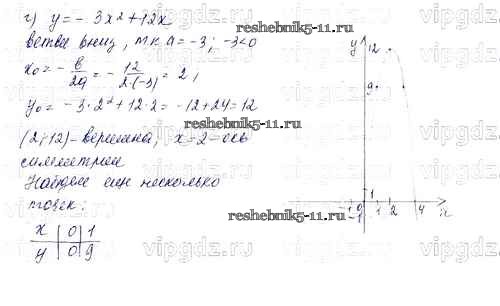 г) y = -3x² + 12x
ветви вниз, т.к. a = -3; -3<0
x₀ = -b/2a = -12/2·(-3) = 2;
y₀ = -3·2² + 12·2 = -12+24=12
(2; 12) - вершина, x=2 - ось
симметрии
Найдем ещё несколько
точек:
x | 0 | 1
y | 0 | 9
y
12
9
1
-1 0 1 2 4 x
-1
reshebnik5-11.ru
reshebnik5-11.ru
reshebnik5-11.ru
vipgdz.ru
vipgdz.ru
vipgdz.ru
vipgdz.ru
vipgdz.ru
vipgdz.ru
vipgdz.ru
vipgdz.ru
vipgdz.ru